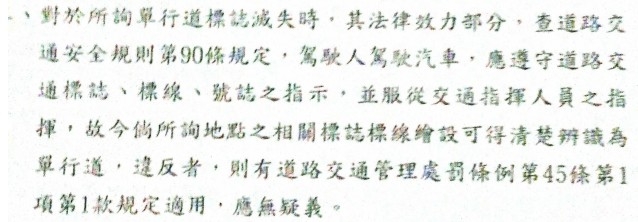 、對於所詢單行道標誌滅失時，其法律效力部分，查道路交
通安全規則第90條規定，駕駛人駕駛汽車，應遵守道路交
通標誌、標線、號誌之指示，並服從交通指揮人員之指
揮，故今倘所詢地點之相關標誌標線繪設可得清楚辨識為
單行道，違反者，則有道路交通管理處罰條例第45條第1
項第1款規定適用，應無疑義。